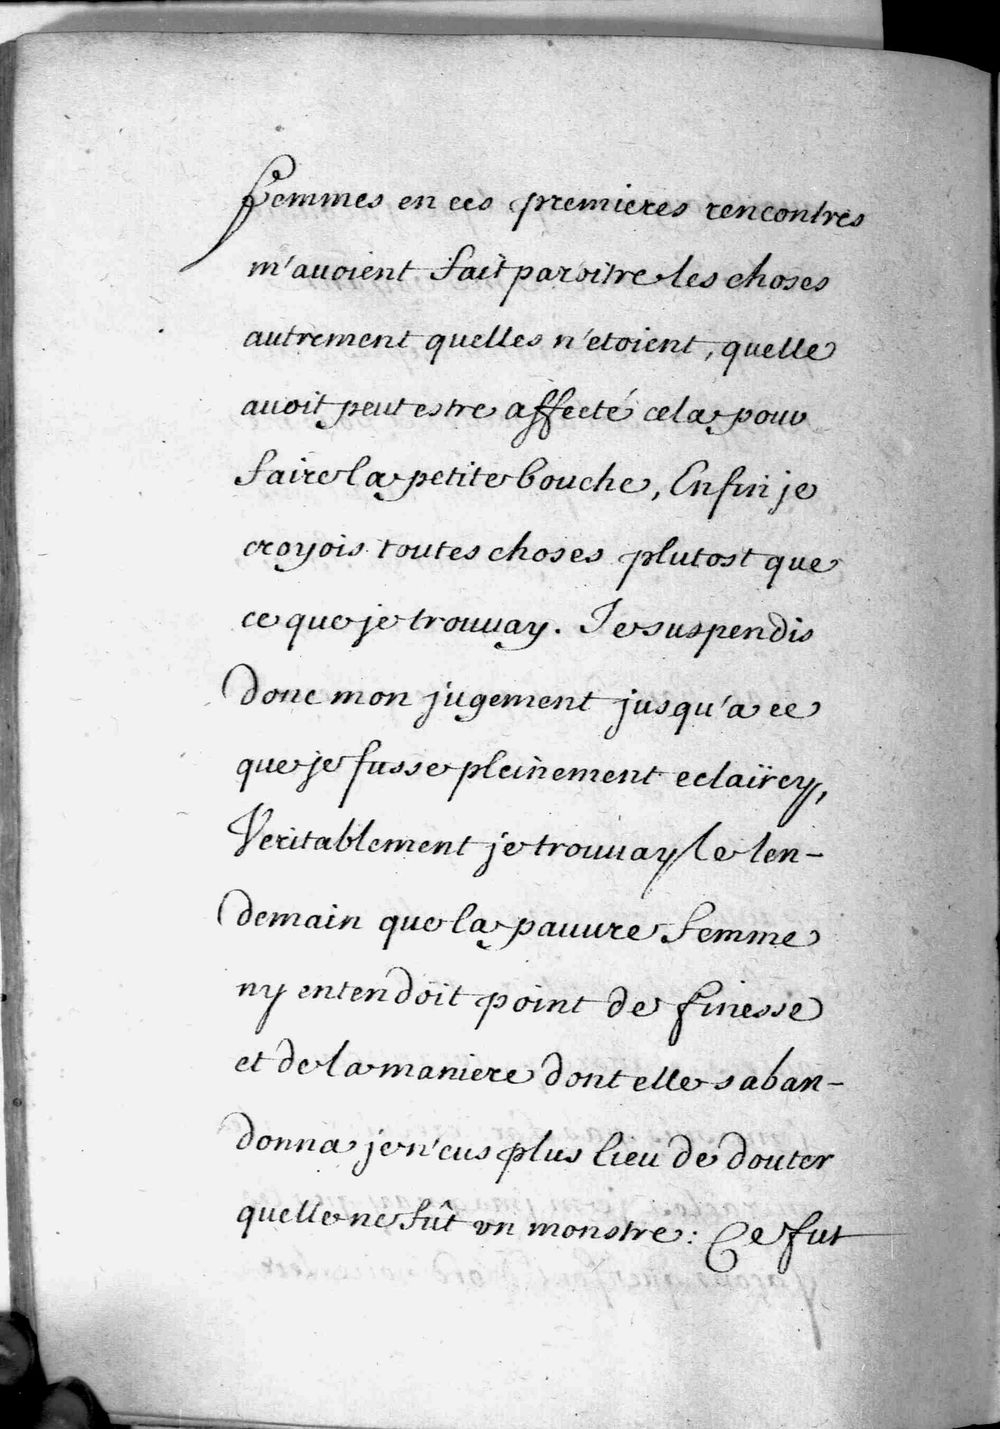 femmes en ces premieres rencontres
m'auoient fait paroitre les choses
autrement quelles n'etoient, quelle
auoit peut estre affecté cela pour
faire la petite bouche, Enfin je
croyois toutes choses plutost que
ce que je trouuay. Je suspendis
donc mon jugement jusqu'a ce
que je fusse pleinement eclaircy,
Veritablement je trouuay le len-
demain que la pauure femme
ny entendoit point de finesse
et de la maniere dont elle saban-
donna je n'eus plus lieu de douter
quelle ne fût vn monstre: Ce fut